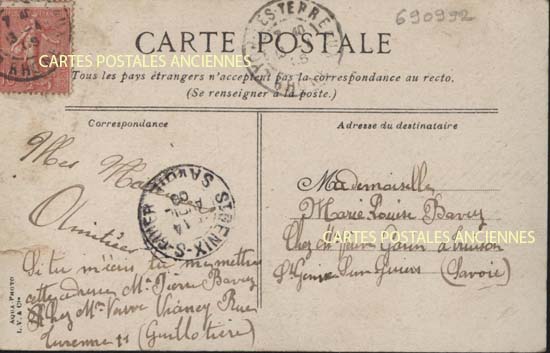 690992
CARTE POSTALE
CARTES POSTALES ANCIENNES
Tous les pays étrangers n'acceptent pas la correspondance au recto.
(Se renseigner à la poste.)
Correspondance
Mes
Si tu m'écris tu
cette adresse Mr Pierre Bavuz
Chez Mme Veuve Rue
Turenne 11 (Guillotière)
Adresse du destinataire
Mademoiselle
Marie Louise Bavuz
CARTES POSTALES ANCIENNES
Chez
St Genix sur Guiers (Savoie)
ST GENIX-S-GUIERS SAVOIE
14
AQUA-PHOTO
L.V. & Cie